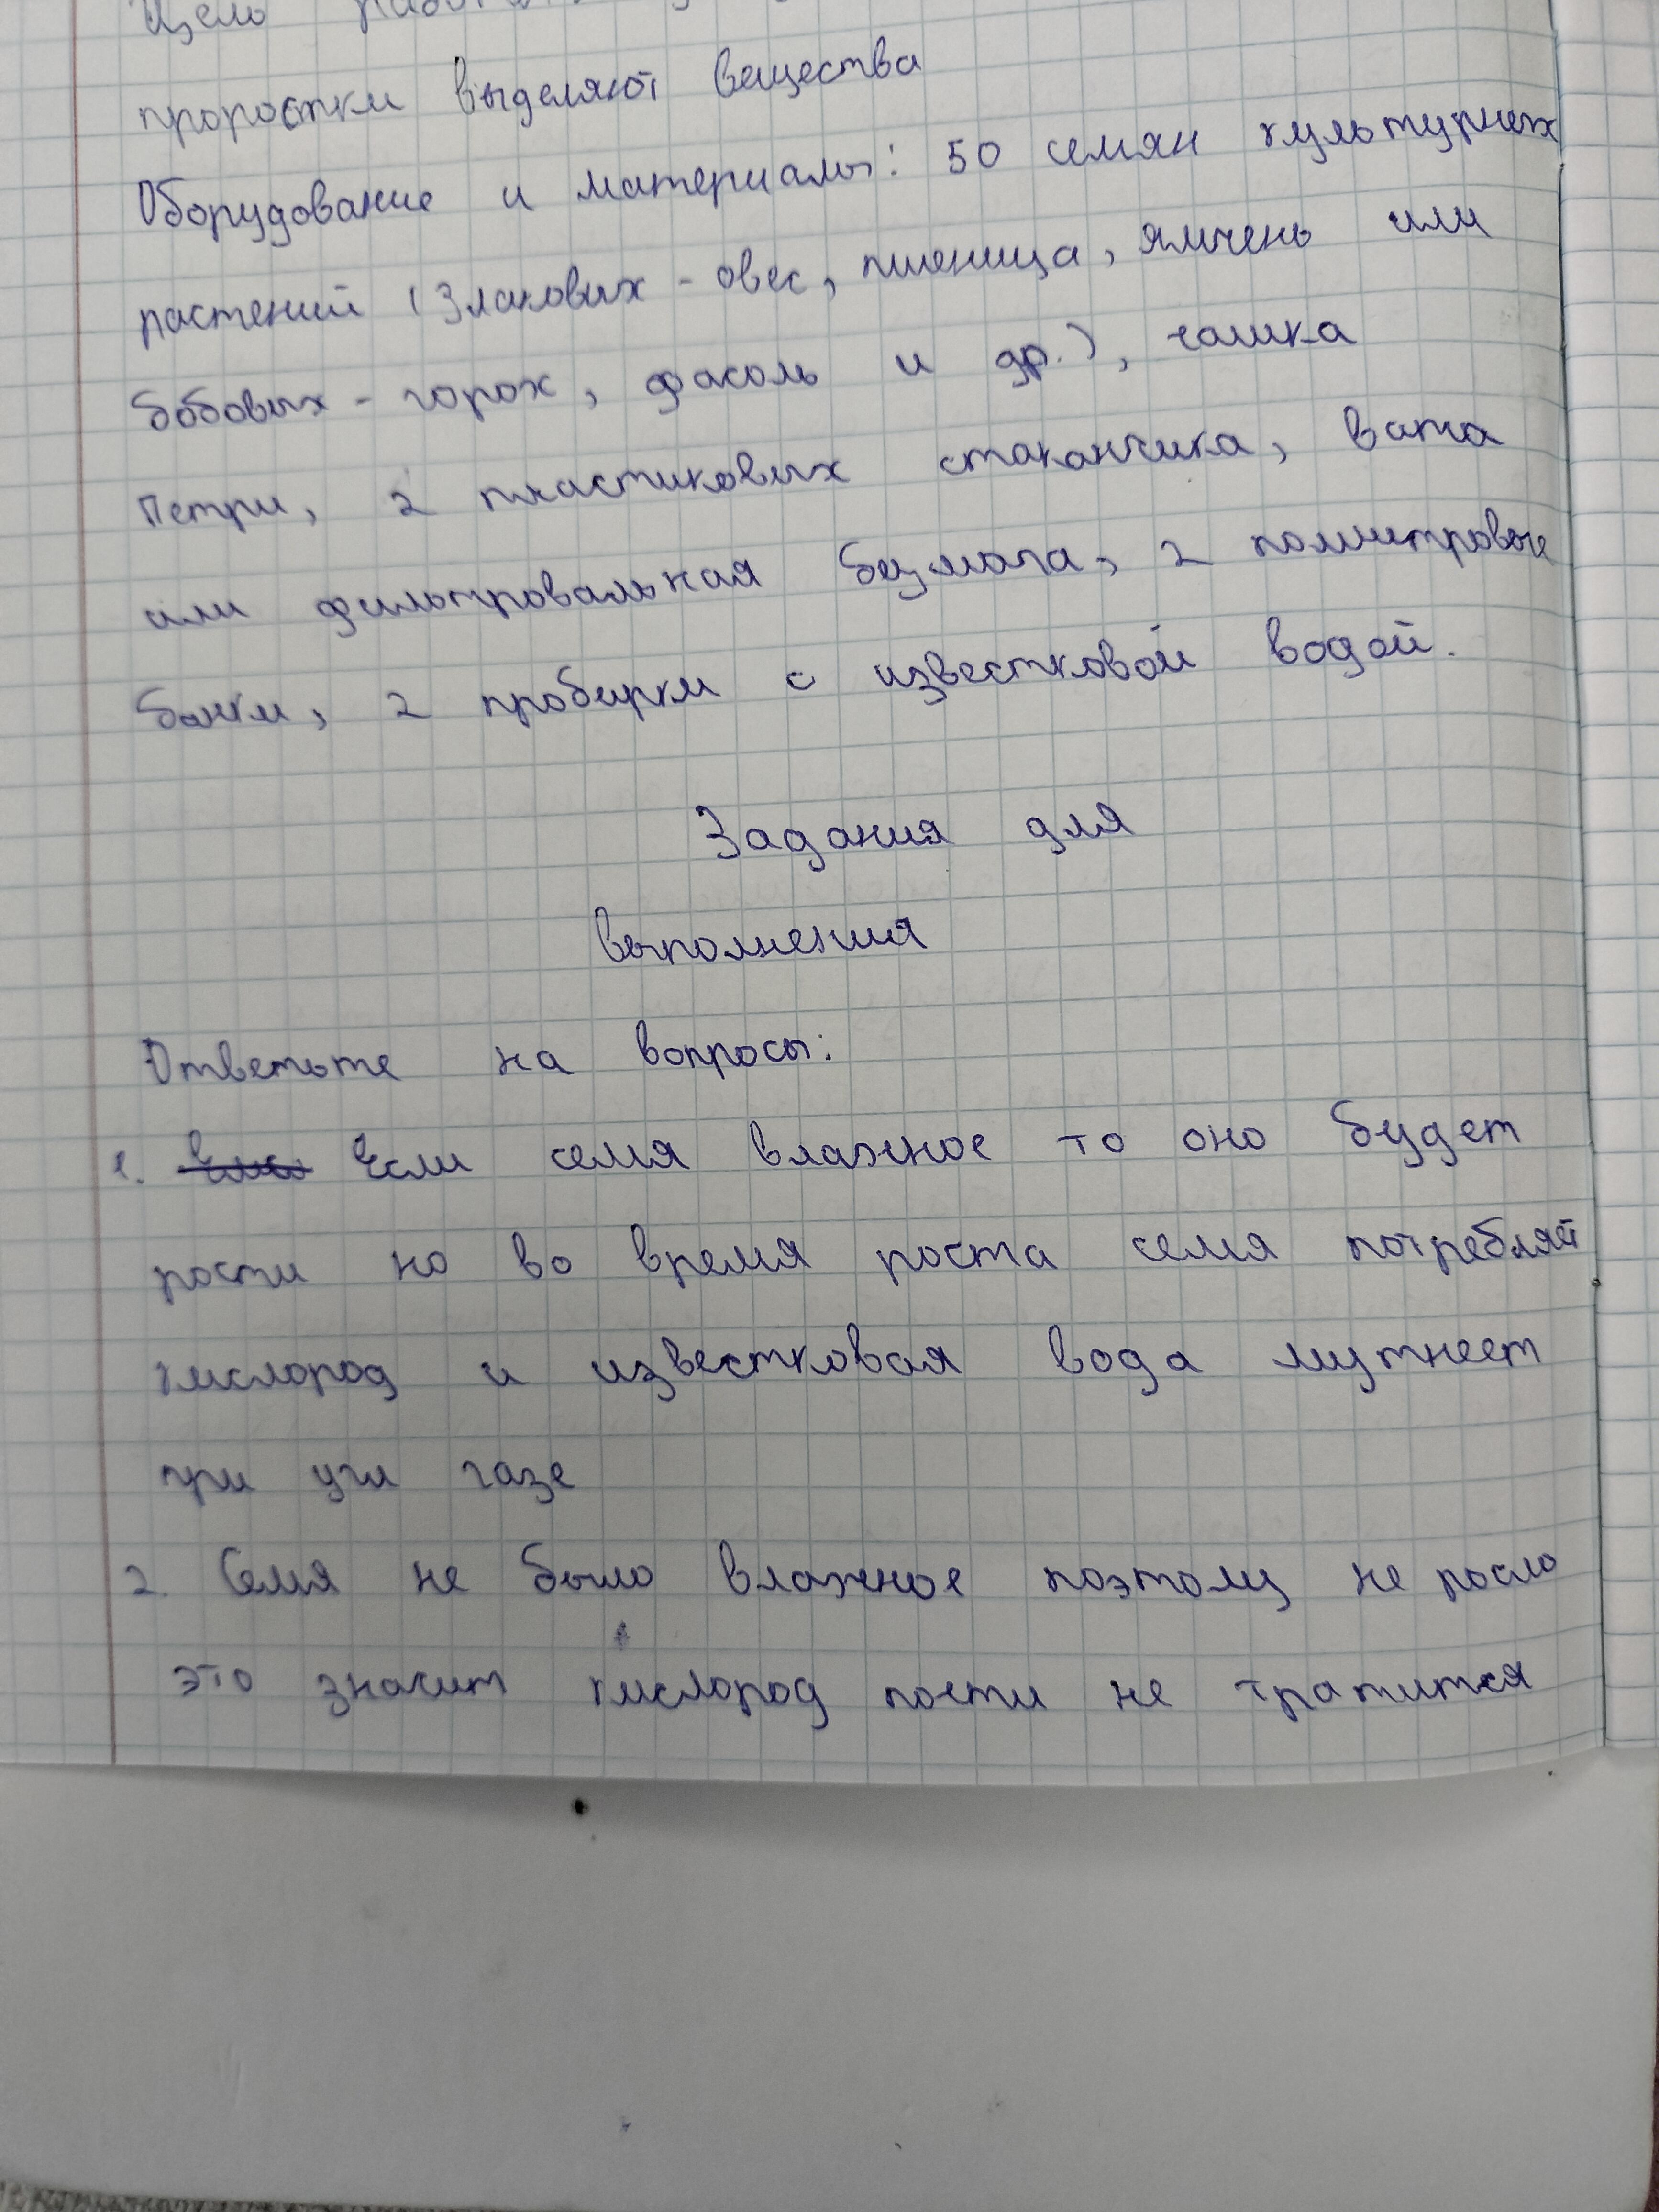 Цель
проростки выделяют вещества
Оборудование и материалы: 50 семян культурных
растений (Злаковых - овес, пшеница, ячмень или
бобовых - горох, фасоль и др.), чашка
Петри, 2 пластиковых стаканчика, вата
или фильтровальная бузмага, 2 полиитровые
банки, 2 пробирки с известковой водой.
Задания для
выполнения
Ответьте на вопросы:
1. Если семя влажное то оно будет
рости но во время роста семя потребляет
кислород и известковая вода мутнеет
при угл газе
2. Семя не было влажное поэтому не росло
это значит кислород почти не тратится